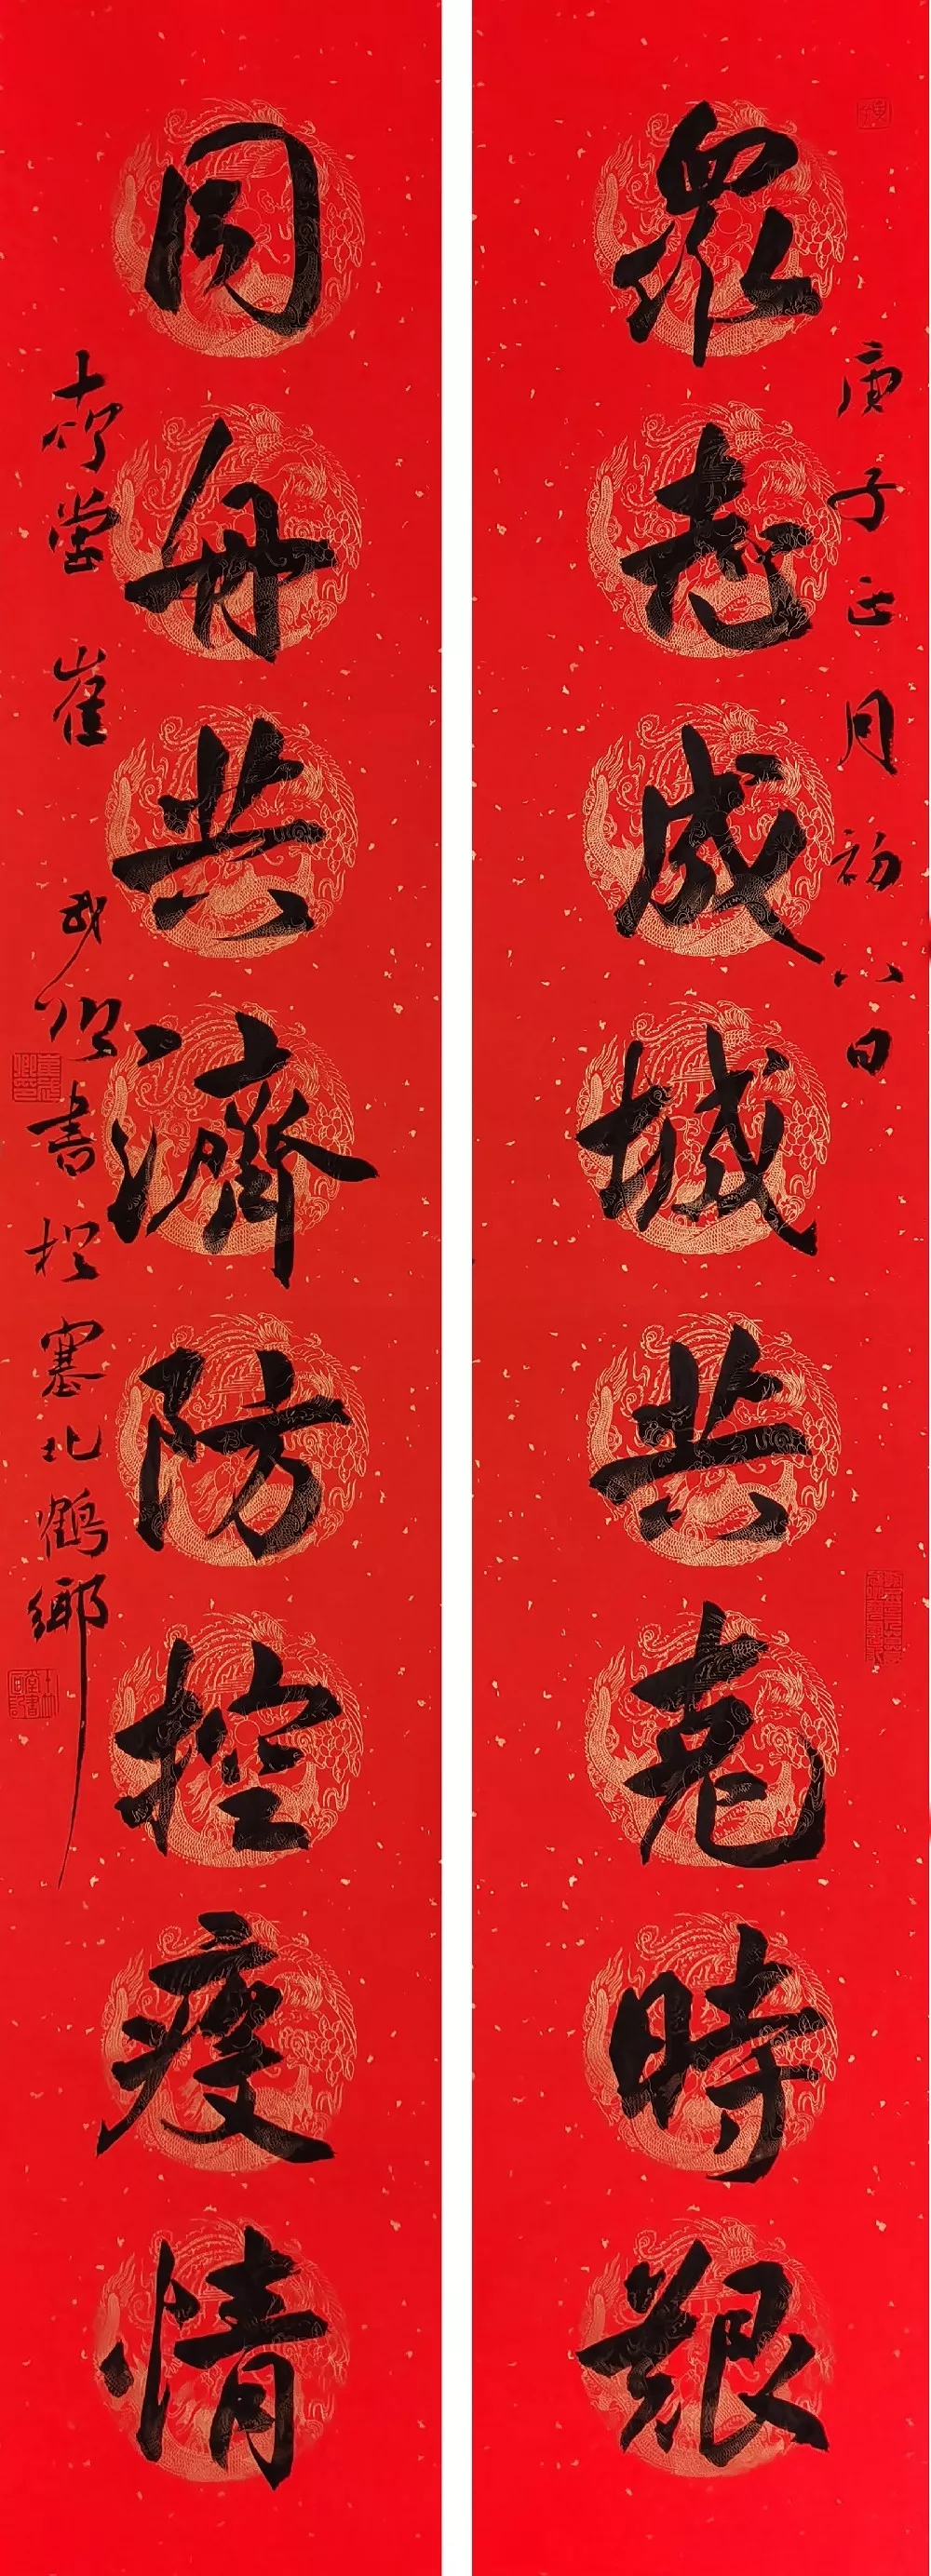 庚子正月初八日
衆志成城共克時艱
同舟共濟防控疫情
崔
書於塞北鶴鄉